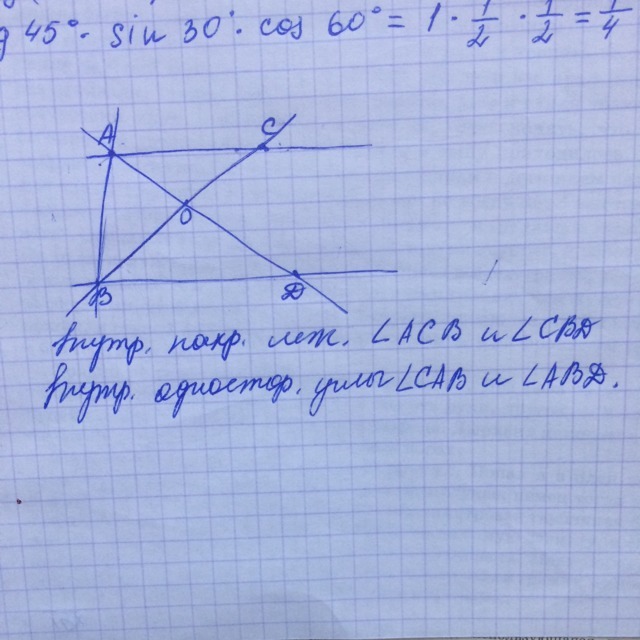 g 45° · sin 30° · cos 60° = 1 · 1/2 · 1/2 = 1/4
A
C
O
B
D
Внутр. накр. леж. ∠ACB и ∠CBD
Внутр. одностор. углы ∠CAB и ∠ABD.